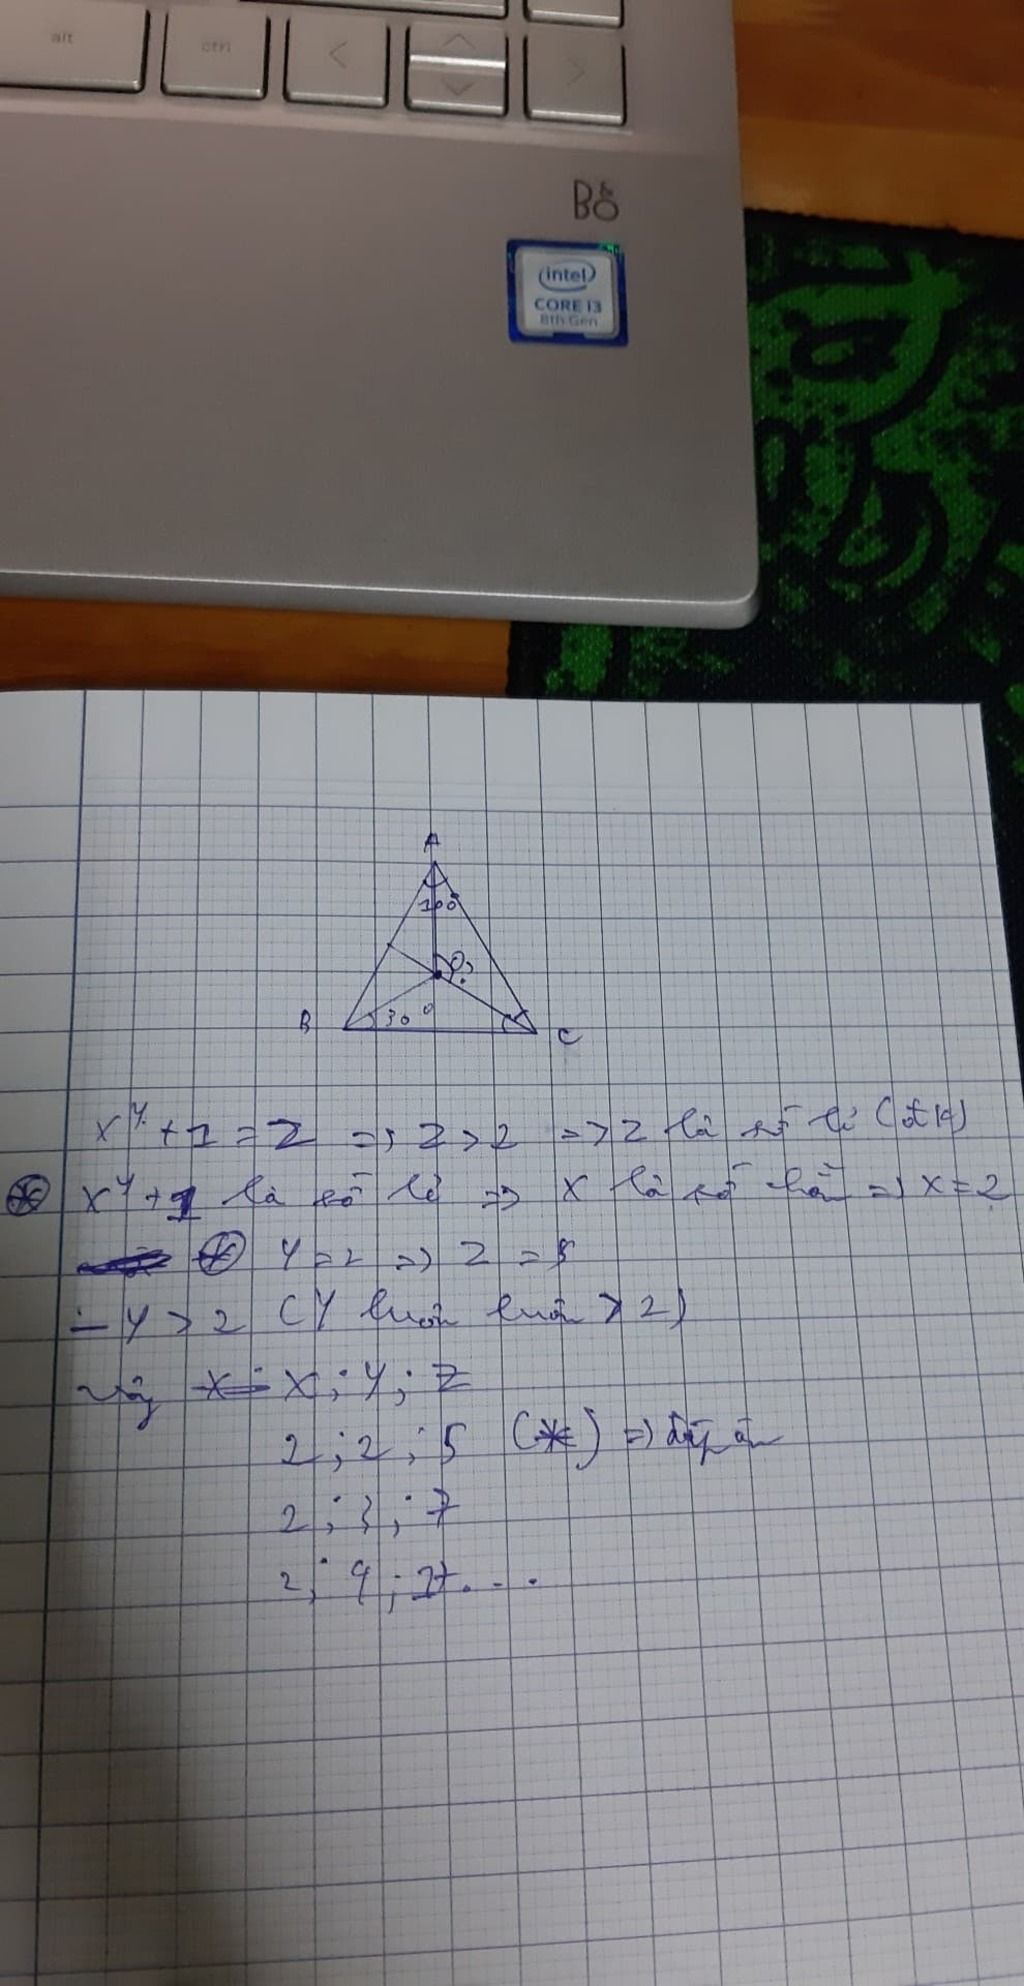 alt ctrl < >
Bố
intel
CORE i3
8th Gen
A
100°
O ?
B 30° C
x^y + 1 = z => z > 2 => z là số lẻ (đk)
* x^y + 1 là số lẻ => x là số chẵn => x = 2
* y = 2 => z = 5
- y > 2 (y luôn luôn > 2)
Vậy x ; y ; z
2 ; 2 ; 5 (*) => đáp án
2 ; 3 ; 7